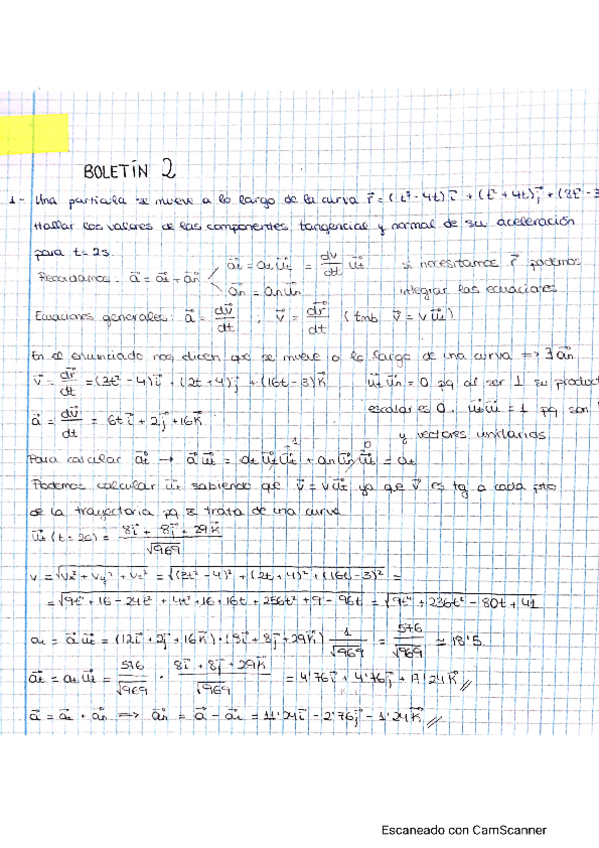 BOLETÍN 2
1- Una partícula se mueve a lo largo de la curva r⃗ = (t³-4t)i⃗ + (t²+4t)j⃗ + (8t²-3
Hallar los valores de las componentes tangencial y normal de su aceleración
para t=2s.
Recordamos: a⃗ = a⃗t + a⃗n a⃗t = at u⃗t = dv/dt u⃗t si necesitamos r⃗ podemos
a⃗n = an u⃗n integrar las ecuaciones
Ecuaciones generales: a⃗ = dv⃗/dt , v⃗ = dr⃗/dt (tmb v⃗ = v u⃗t)
En el enunciado nos dicen que se mueve a lo largo de una curva ⇒ ∃ a⃗n
v⃗ = dr⃗/dt = (3t²-4)i⃗ + (2t+4)j⃗ + (16t-3)k⃗ u⃗t u⃗n = 0 pq al ser ⊥ su product
a⃗ = dv⃗/dt = 6t i⃗ + 2j⃗ + 16k⃗ escalar es 0. u⃗t u⃗t = 1 pq son
y vectores unitarios
Para calcular a⃗t → a⃗ u⃗t = at u⃗t u⃗t + an u⃗n u⃗t = at
1 0
Podemos calcular u⃗t sabiendo que v⃗ = v u⃗t ya que v⃗ es tg a cada pto
de la trayectoria pq se trata de una curva
u⃗t (t=2s) = 8i⃗ + 8j⃗ + 29k⃗ / √969
v = √vx² + vy² + vz² = √(3t²-4)² + (2t+4)² + (16t-3)² =
= √9t⁴ + 16 - 24t² + 4t² + 16 + 16t + 256t² + 9 - 96t = √9t⁴ + 236t² - 80t + 41
at = a⃗ u⃗t = (12i⃗ + 2j⃗ + 16k⃗) · (8i⃗ + 8j⃗ + 29k⃗) 1/√969 = 576/√969 ≃ 18'5.
a⃗t = at u⃗t = 576/√969 · 8i⃗ + 8j⃗ + 29k⃗/√969 = 4'76i⃗ + 4'76j⃗ + 17'24k⃗ //
a⃗ = a⃗t + a⃗n ⇒ a⃗n = a⃗ - a⃗t = 11'24i⃗ - 2'76j⃗ - 1'24k⃗ //
Escaneado con CamScanner